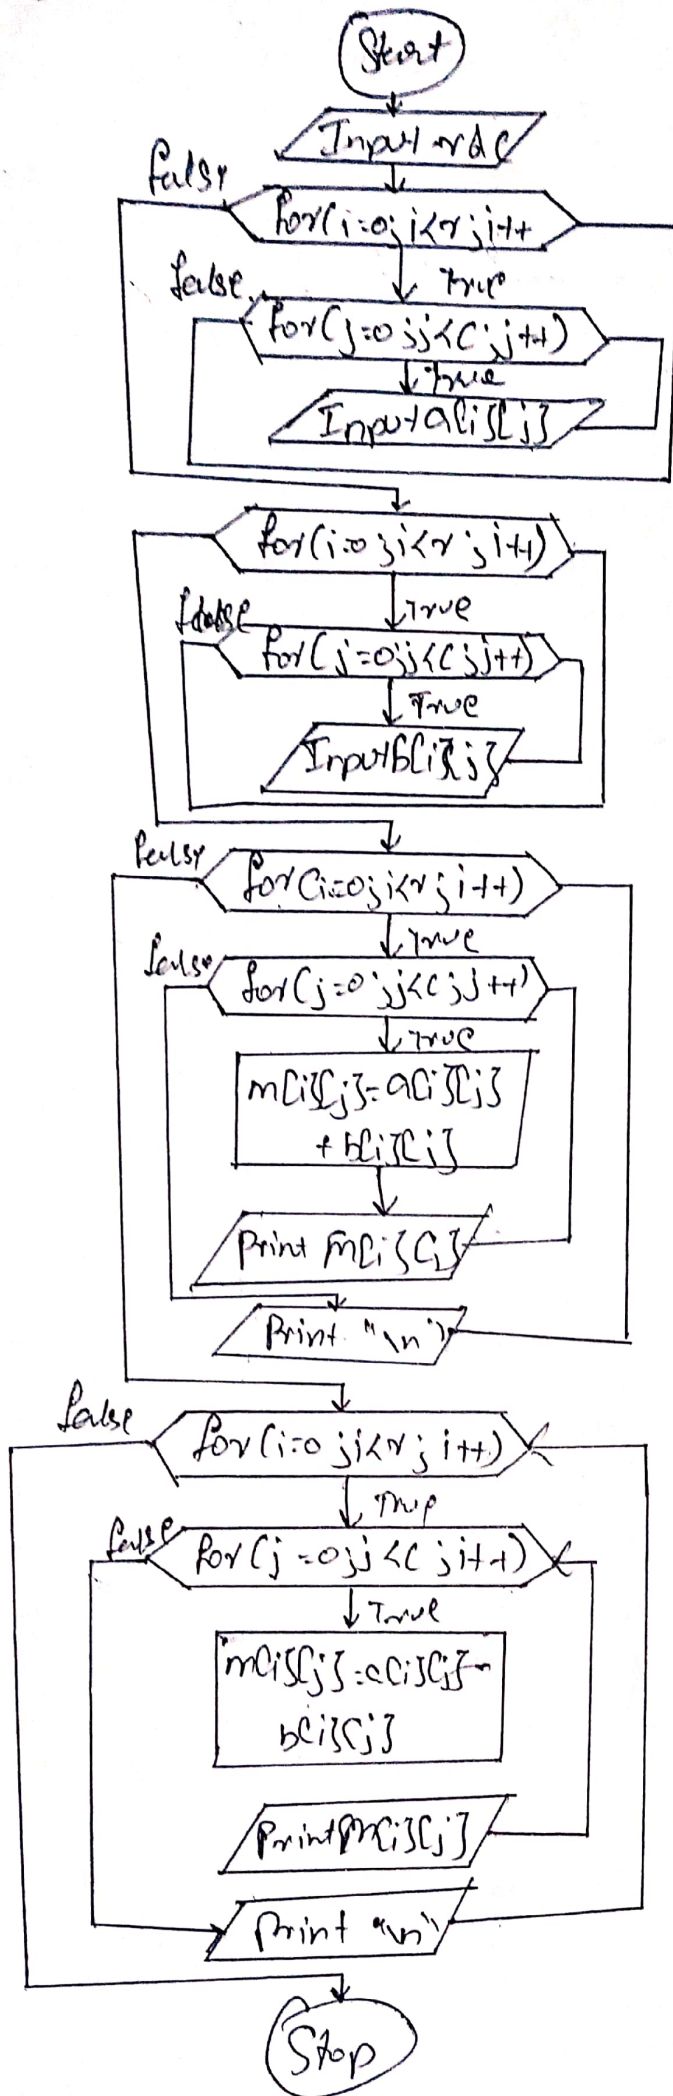 Start
Input r & c
false
for(i=0; i<r; i++
True
false
for(j=0;j<c;j++)
True
Input a[i][j]
for(i=0;i<r;i++)
True
false
for(j=0;j<c;j++)
True
Input b[i][j]
false
for(i=0;i<r;i++)
True
false
for(j=0;j<c;j++)
True
m[i][j]=a[i][j]
+ b[i][j]
Print m[i][j]
Print "\n"
false
for(i=0;i<r;i++)
True
false
for(j=0;j<c;j++)
True
m[i][j]=a[i][j]-
b[i][j]
Print m[i][j]
Print "\n"
Stop